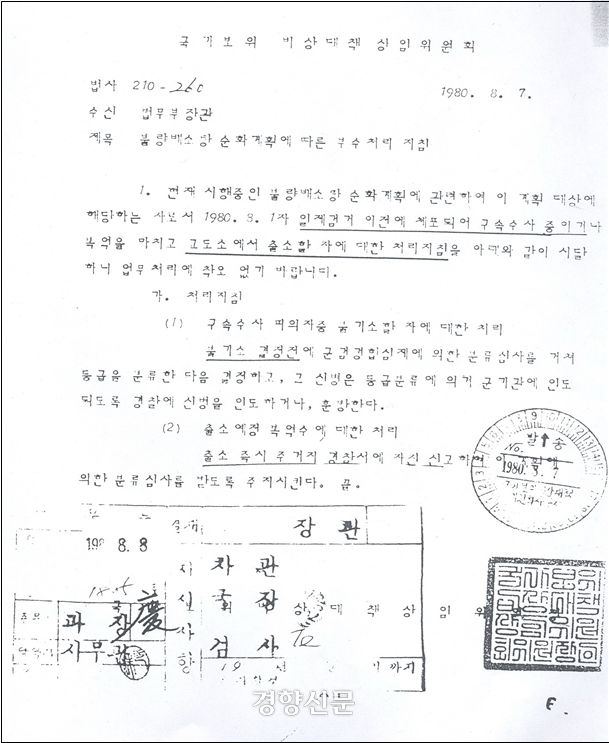 국가보위 비상대책 상임위원회
법사 210-260
1980. 8. 7.
수신 법무부장관
제목 불량배소탕 순화계획에 따른 부수처리 지침
1. 현재 시행중인 불량배소탕 순화계획에 관련하여 이 계획 대상에
해당하는 자로서 1980. 8. 1자 일제검거 이전에 체포되어 구속수사 중이거나
복역을 마치고 교도소에서 출소할 자에 대한 처리지침을 아래와 같이 시달
하니 업무처리에 착오 없기 바랍니다.
가. 처리지침
(1) 구속수사 피의자중 불기소할 자에 대한 처리
불기소 결정전에 군검경합심제에 의한 분류심사를 거쳐
등급을 분류한 다음 결정하고, 그 신병은 등급분류에 의거 군기관에 인도
되도록 경찰에 신병을 인도하거나, 훈방한다.
(2) 출소예정 복역수에 대한 처리
출소 즉시 주거지 경찰서에 자진 신고하여
의한 분류심사를 받도록 주지시킨다. 끝.
발송
No.
1980. 8. 7
장관
198 8. 8
차관
국장
상 대 책 상 임 위
과장 慶
검사
사무관
까지
경향신문